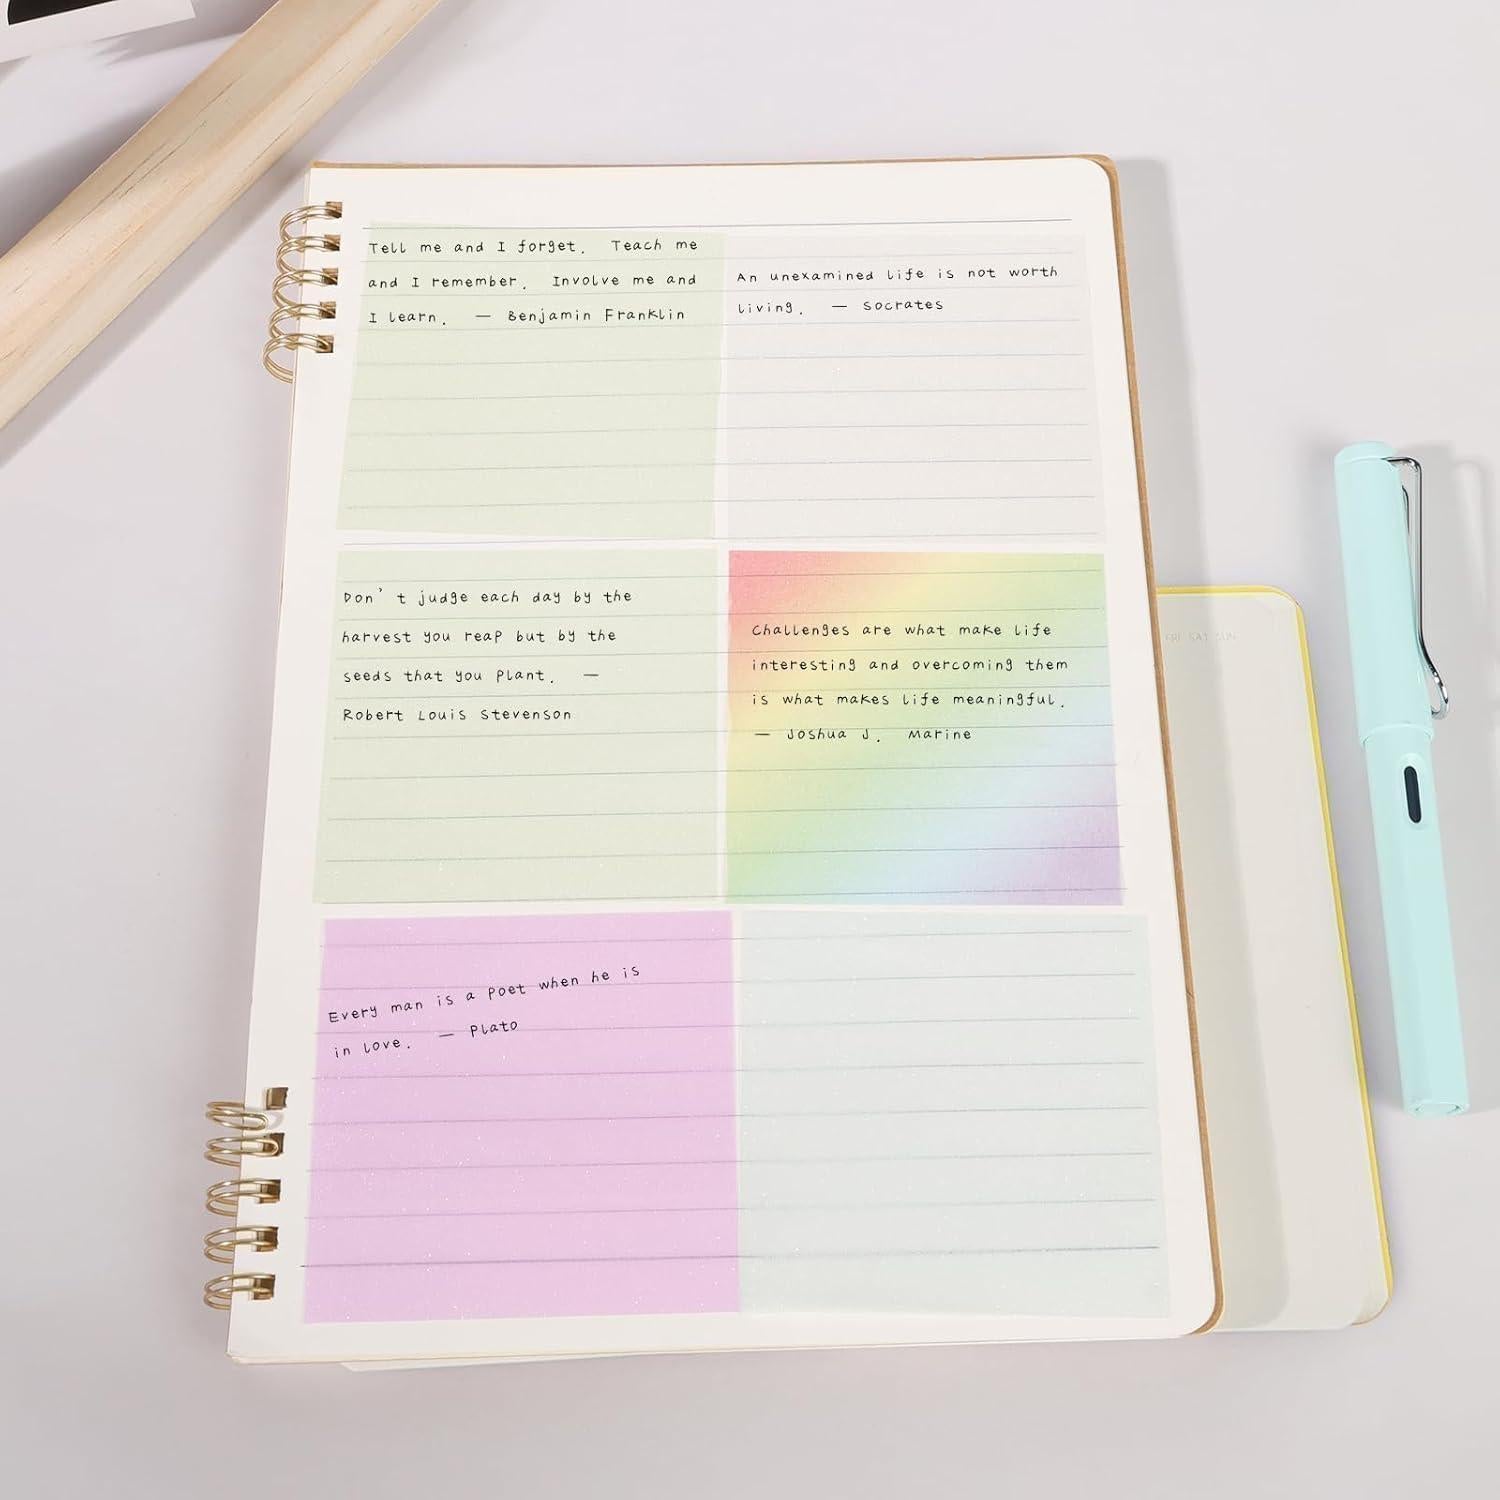 Tell me and I forget. Teach me
and I remember. Involve me and
I learn. — Benjamin Franklin
An unexamined life is not worth
living. — Socrates
Don't judge each day by the
harvest you reap but by the
seeds that you plant. —
Robert Louis Stevenson
Challenges are what make life
interesting and overcoming them
is what makes life meaningful.
— Joshua J. Marine
Every man is a poet when he is
in love. — Plato
FRI SAT SUN